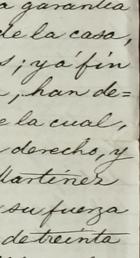 a garantia
de la casa,
s; y á fin
, han de=
e la cual,
derecho, y
Martinez
su fuerza
de treinta